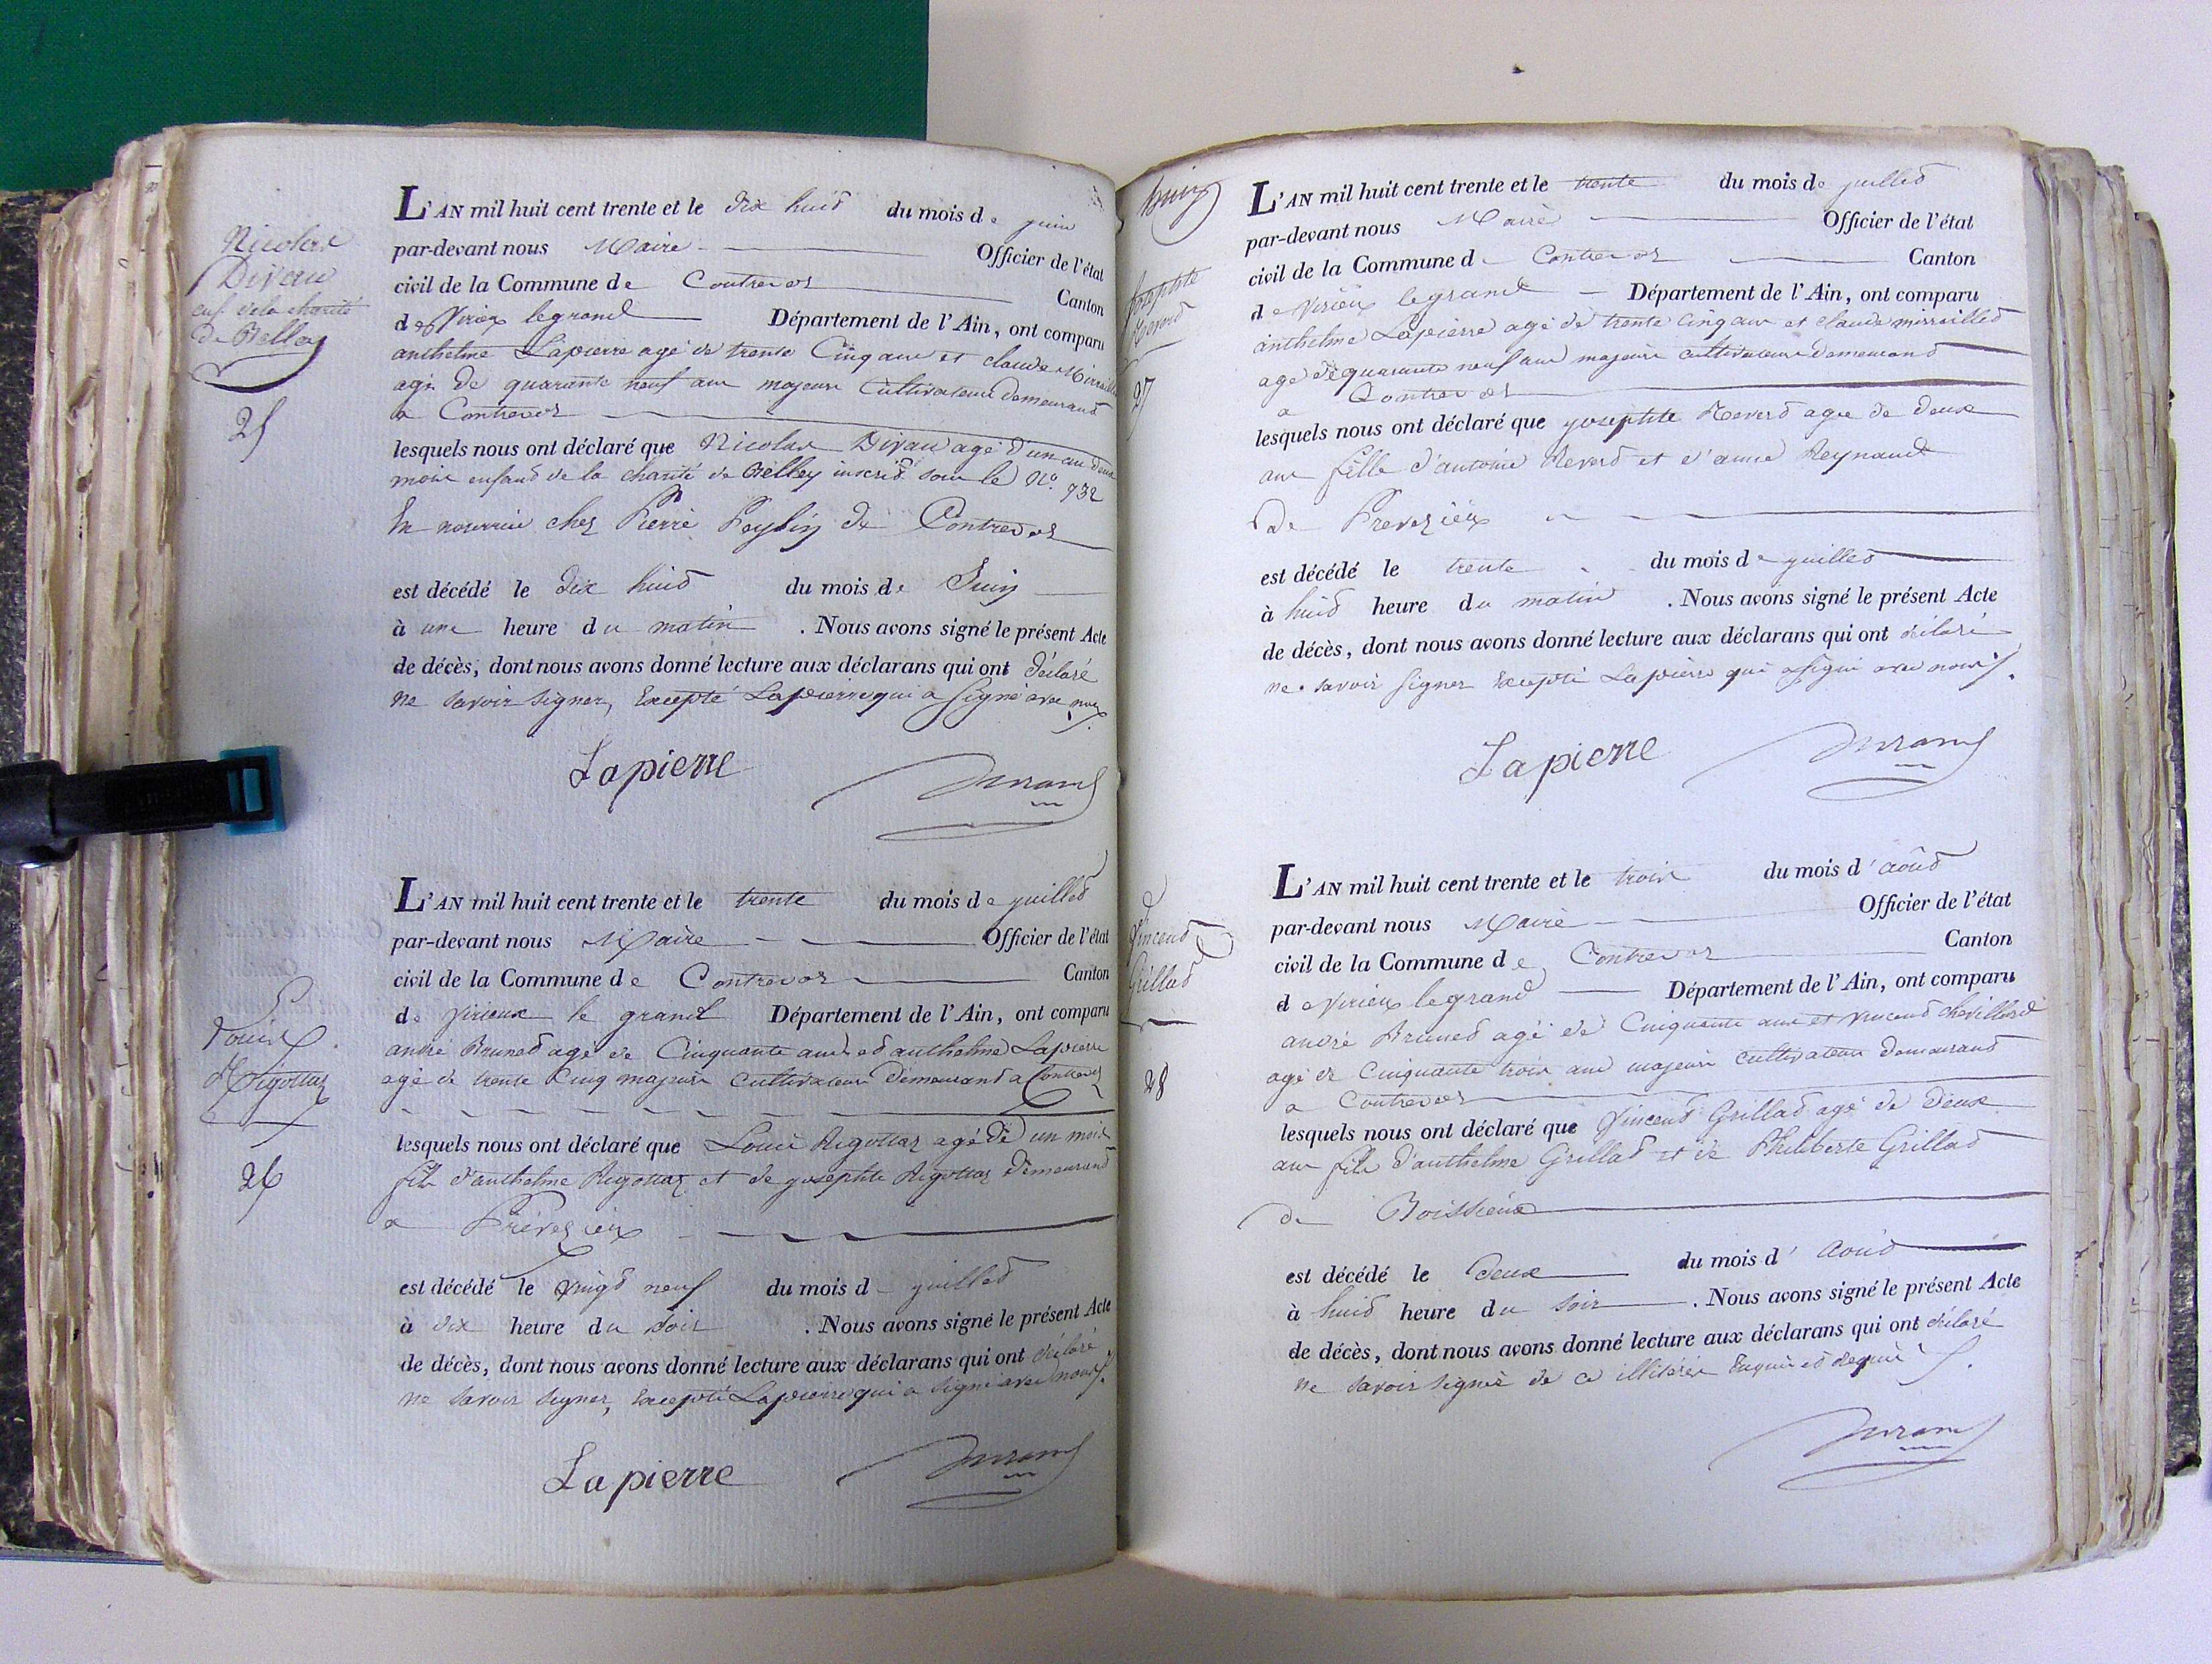 Nicolas
Divau
enf. de la charité
de Belley
25
L'AN mil huit cent trente et le dix huid du mois de juin
par-devant nous Maire Officier de l'état
civil de la Commune de Contrevos Canton
de Virieu legrand Département de l'Ain, ont comparu
anthelme Lapierre agé de trente Cinq ans et claude Mirraillet
agé de quarante neuf ans majeurs Cultivateurs demeurand
a Contrevos
lesquels nous ont déclaré que Nicolas Divau agé d'un an deux
mois enfand de la charité de Belley inscrid sous le No. 932
En nourrice chez Pierre Peylin de Contrevos
est décédé le dix huid du mois de Juin
à une heure du matin . Nous avons signé le présent Acte
de décès, dont nous avons donné lecture aux déclarans qui ont déclaré
ne savoir signer, Excepté Lapierre qui a signé avec nous
Lapierre Durand
Louis
Rigottaz
26
L'AN mil huit cent trente et le trente du mois de juilled
par-devant nous Maire Officier de l'état
civil de la Commune de Contrevos Canton
de Virieux le grand Département de l'Ain, ont comparu
andré Bruned agé de Cinquante ans ed anthelme Lapierre
agé de trente Cinq majeurs Cultivateurs demeurand a Contrevos
lesquels nous ont déclaré que Louis Rigottaz agé de un mois
fils d'anthelme Rigottaz et de josephte Rigottaz demeurand
a Prévezieix
est décédé le vingd neuf du mois d juilled
à dix heure du soir . Nous avons signé le présent Acte
de décès, dont nous avons donné lecture aux déclarans qui ont déclaré
ne savoir signer, Excepté Lapierre qui a signé avec nous
Lapierre Durand
josephte
Reverd
27
L'AN mil huit cent trente et le trente du mois de juilled
par-devant nous Maire Officier de l'état
civil de la Commune d Contrevos Canton
de Virieu legrand Département de l'Ain, ont comparu
anthelme Lapierre agé de trente Cinq ans et claude mirraillet
agé de quarante neuf ans majeurs cultivateurs demeurand
a Contrevos
lesquels nous ont déclaré que josephte Reverd agée de deux
ans fille d'antoine Reverd et d'anne Reynaud
de Prevezieix
est décédé le trente du mois de juilled
à huid heure du matin . Nous avons signé le présent Acte
de décès, dont nous avons donné lecture aux déclarans qui ont déclaré
ne savoir signer Excepté Lapierre qui a signé avec nous
Lapierre Durand
Vincend
Grillad
28
L'AN mil huit cent trente et le trois du mois d'aoûd
par-devant nous Maire Officier de l'état
civil de la Commune de Contrevos Canton
de Virieu legrand Département de l'Ain, ont comparu
andré Bruned agé de Cinquante ans et vincend chevillard
agé de Cinquante trois ans majeurs cultivateurs demeurand
a Contrevos
lesquels nous ont déclaré que Vincend Grillad agé de deux
ans fils d'anthelme Grillad et de Philiberte Grillad
de Boissieux
est décédé le deux du mois d'Aoud
à huid heure du soir . Nous avons signé le présent Acte
de décès, dont nous avons donné lecture aux déclarans qui ont déclaré
ne savoir signer de ce illitérés Enquis ed requis
Durand